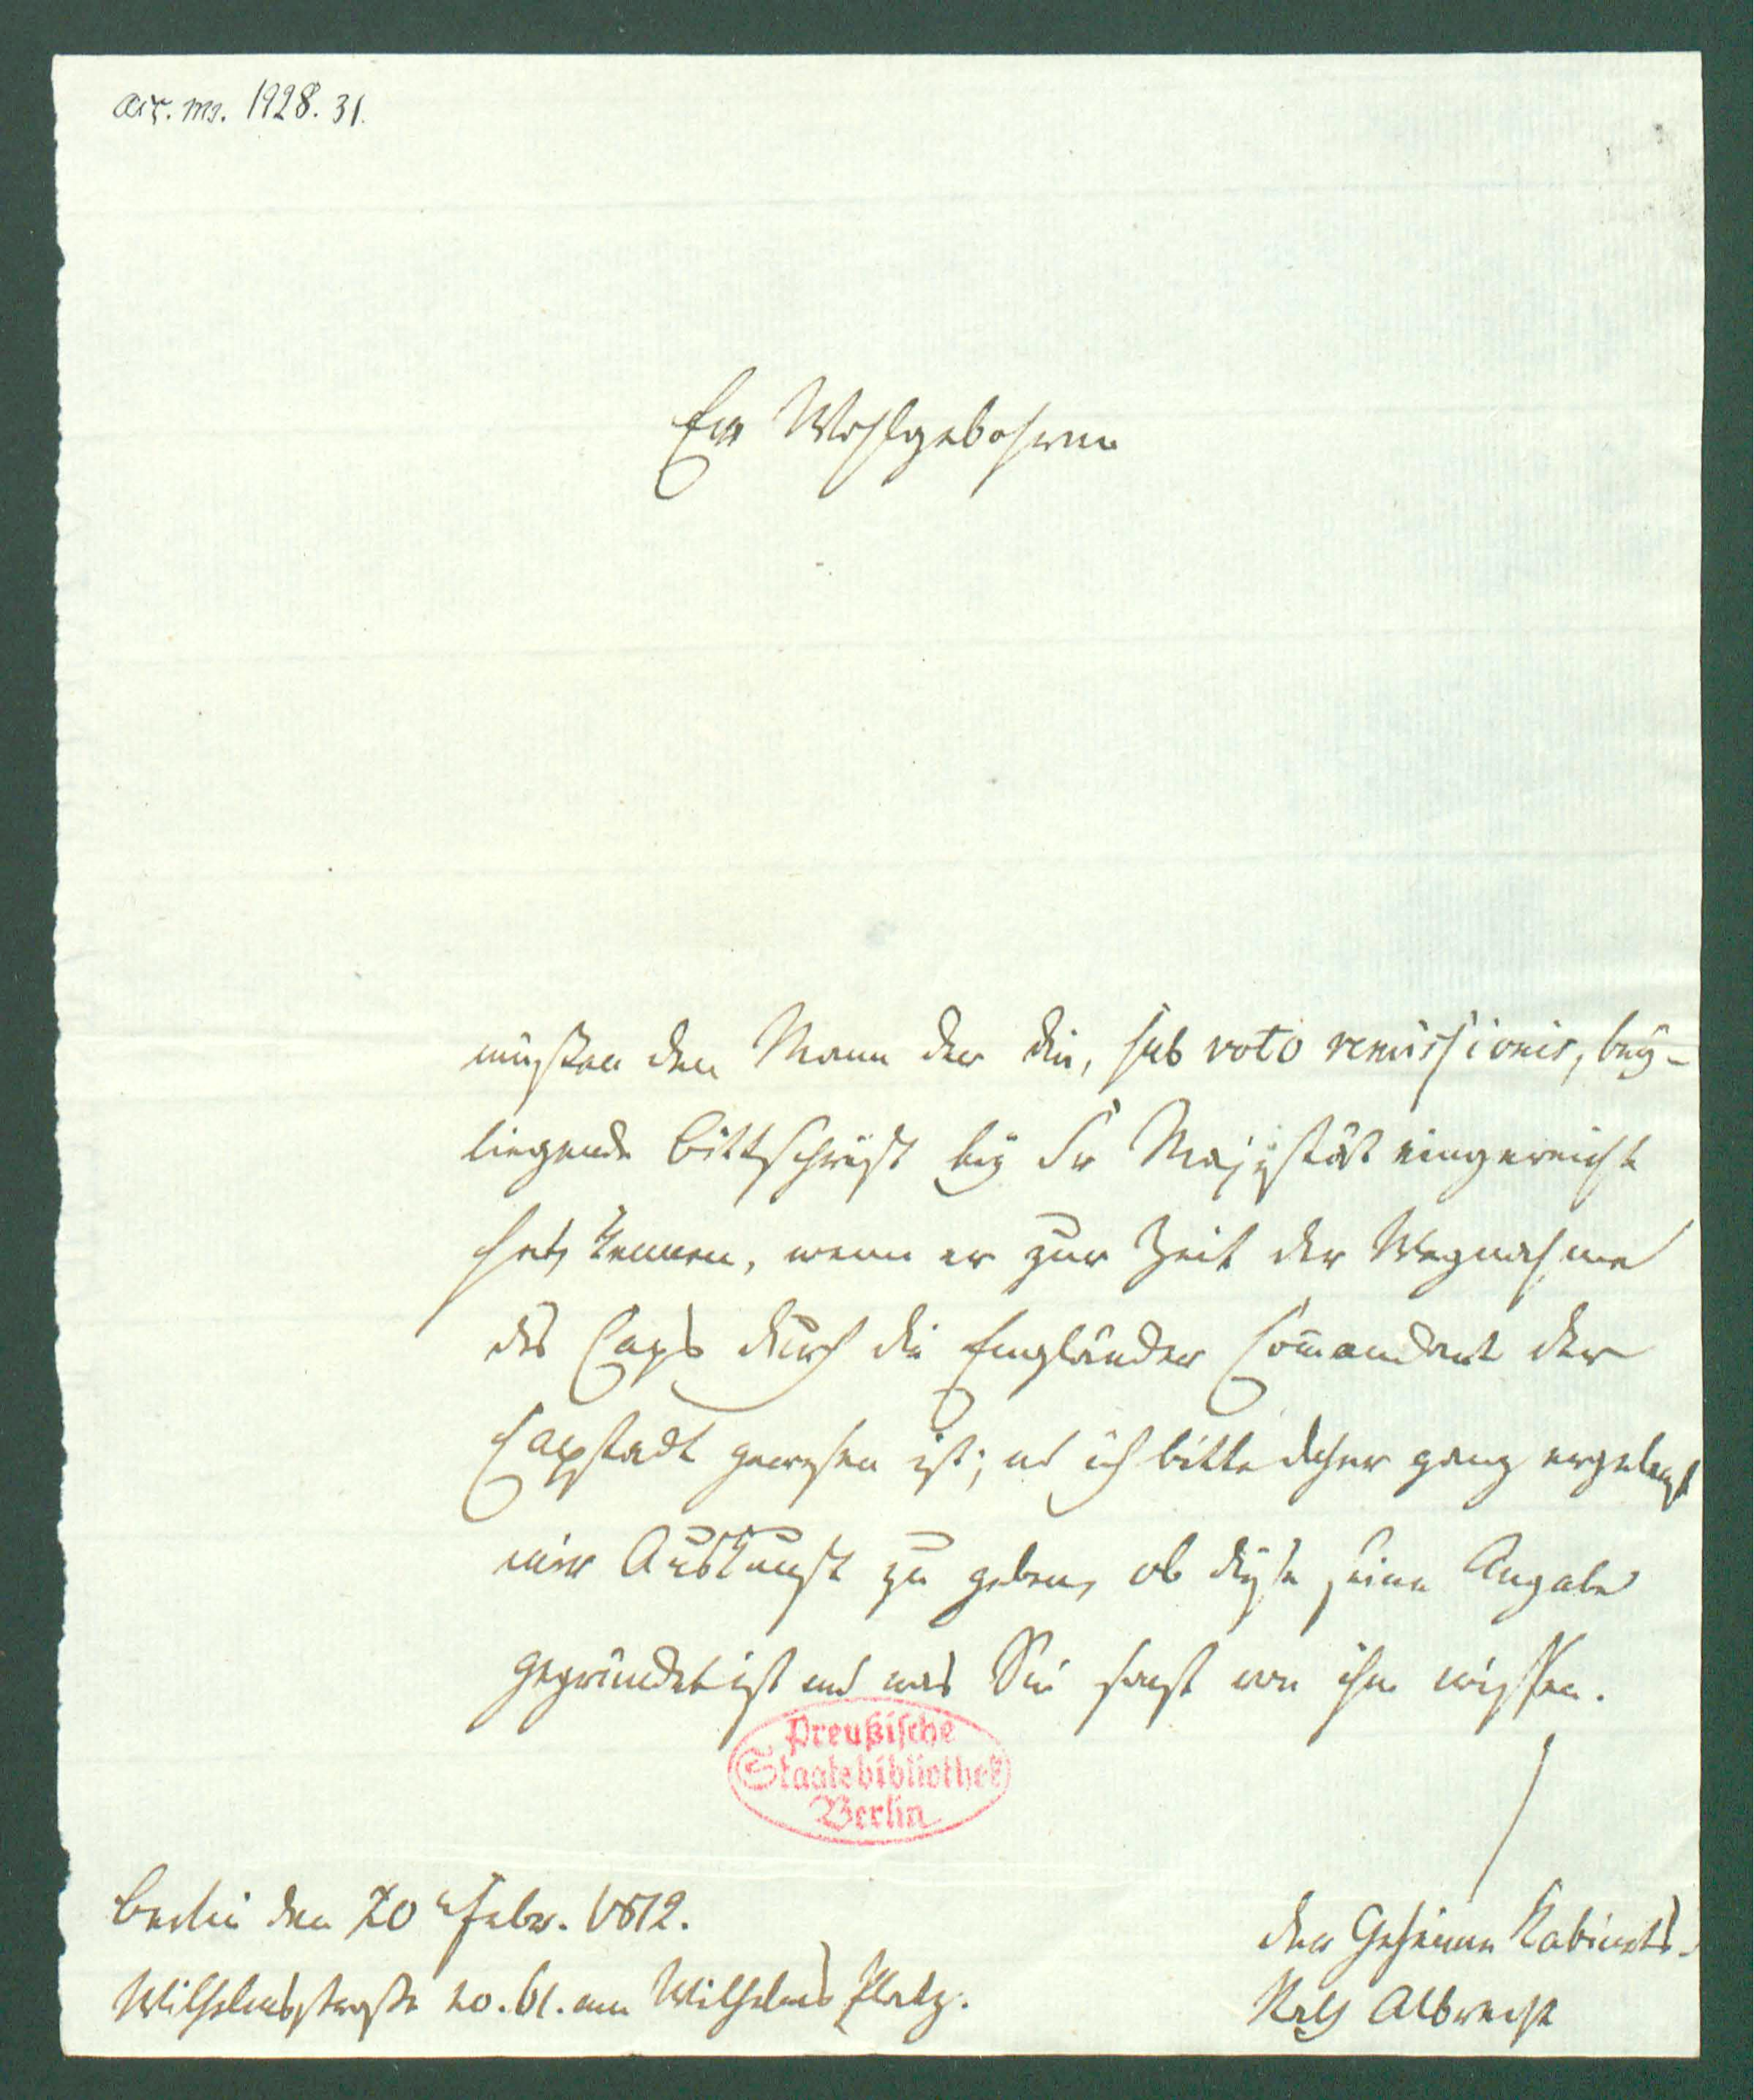 acc. ms. 1928. 31.
Ew Wohlgebohren
müßten den Mann der die, sub voto remissionis, bey-
liegende Bittschrift bey Sr Majestät eingereicht
hat, kennen, wenn er zur Zeit der Wegnahme
des Caps durch die Engländer Com̅andant der
Capstadt gewesen ist; und ich bitte daher ganz ergebenst
mir Auskunft zu geben, ob diese seine Angabe
gegründet ist und was Sie sonst von ihm wissen.
Preußische
Staatsbibliothek
Berlin
Berlin den 20 Febr. 1812.
Wilhelmsstraße no. 61. am Wilhelms Platz.
Der Geheime Kabinets-
Rath Albrecht